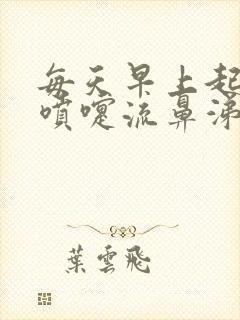 每天早上起
噴嚏流鼻涕
葉雲飛